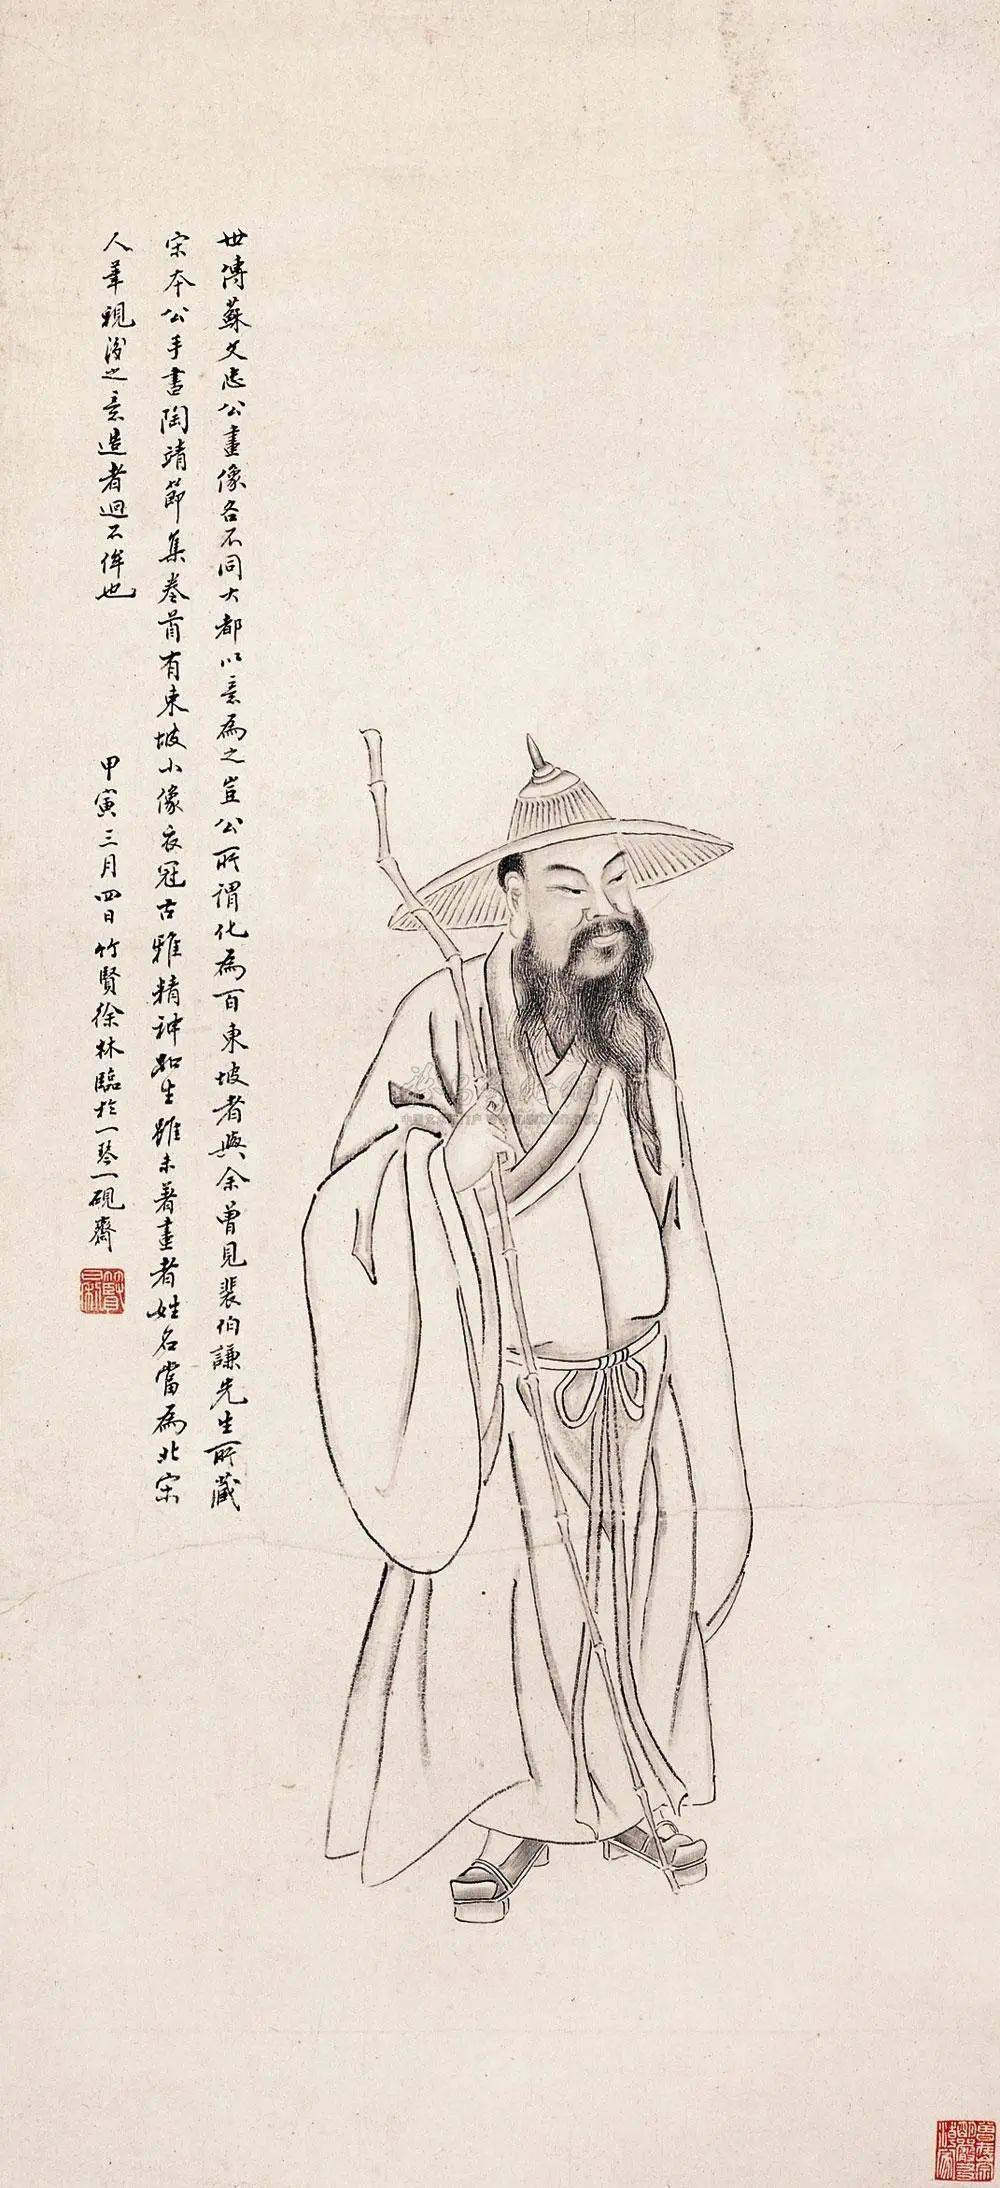 世傳蘇文忠公畫像各不同大都以意為之豈公所謂化為百東坡者與余曾見裴伯謙先生所藏
宋本公手書陶靖節集卷首有東坡小像衣冠古雅精神如生雖未著畫者姓名當為北宋
人筆視後之意造者迥不侔也
甲寅三月四日竹賢徐林臨於一琴一硯齋